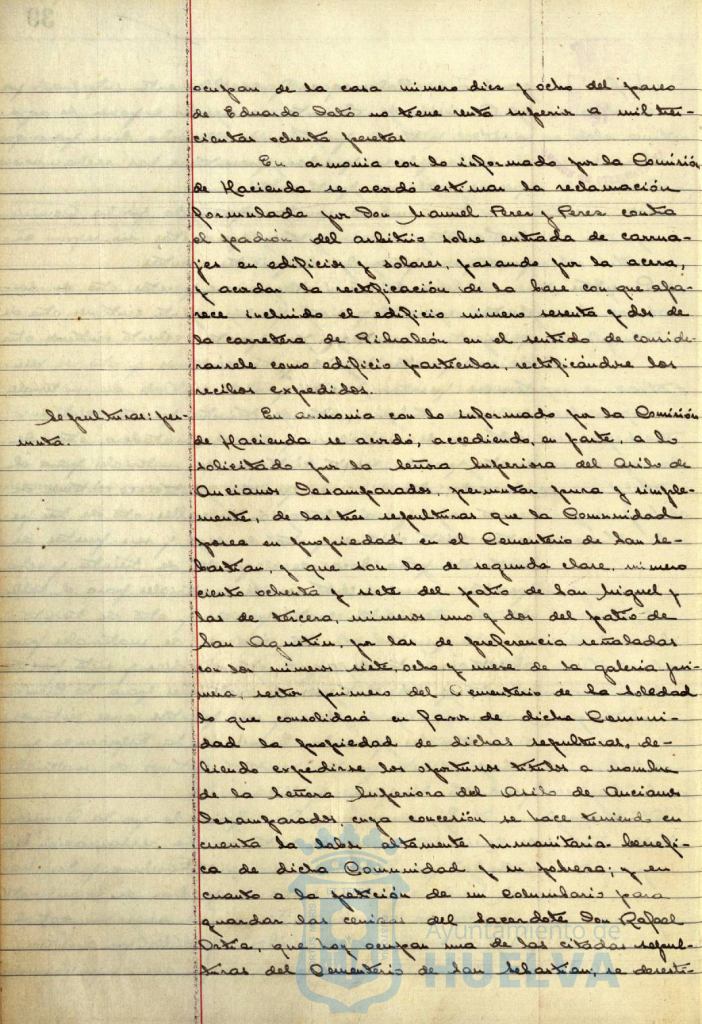 ocupan de la casa número diez y ocho del paseo
de Eduardo Dato no tiene renta superior a mil tres-
cientas ochenta pesetas
En armonia con lo informado por la Comisión
de Hacienda se acordó estimar la reclamación
formulada por Don Manuel Perez y Perez contra
el padrón del arbitrio sobre entrada de carrua-
jes en edificios y solares, pasando por la acera,
y acordar la rectificación de la base con que apa-
rece incluido el edificio número sesenta y dos de
la carretera de Gibraleón en el sentido de conside-
rarsele como edificio particular, rectificándose los
recibos expedidos.
Sepulturas: per-
muta.
En armonia con lo informado por la Comisión
de Hacienda se acordó, accediendo, en parte, a lo
solicitado por la Señora Superiora del Asilo de
Ancianos Desamparados, permutar pura y simple-
mente, de las tres sepulturas que la Comunidad
posea en propiedad en el Cementerio de San Se-
bastian, y que son la de segunda clase, número
ciento ochenta y siete del patio de San Miguel y
las de tercera, números uno y dos del patio de
San Agustin, por las de preferencia señaladas
con los números siete, ocho y nueve de la galeria pri-
mera, sector primero del Cementerio de la Soledad
lo que consolidará en favor de dicha Comuni-
dad la propiedad de dichas sepulturas, de-
biendo expedirse los oportunos titulos a nombre
de la Señora Superiora del Asilo de Ancianos
Desamparados, cuya concesión se hace teniendo en
cuenta la labor altamente humanitaria-benefi-
ca de dicha Comunidad y su pobreza; y en
cuanto a la petición de un columbario para
guardar las cenizas del Sacerdote Don Rafael
que hoy ocupan una de las citadas sepul-
turas del Cementerio de San Sebastian, se desesti-
Ayuntamiento de
HUELVA